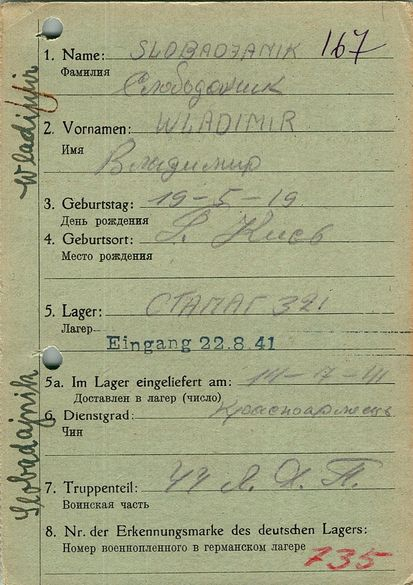 1. Name: SLOBADZANIK 167
Фамилия
Слободяник
2. Vornamen: WLADIMIR
Имя
Владимир
3. Geburtstag: 19-5-19
День рождения
4. Geburtsort: Киев
Место рождения
5. Lager: СТАЛАГ 321
Лагерь
Eingang 22.8.41
5a. Im Lager eingeliefert am: 14-7-41
Доставлен в лагер (число)
6. Dienstgrad: Красноармеец
Чин
7. Truppenteil: 44
Воинская часть
8. Nr. der Erkennungsmarke des deutschen Lagers:
Номер военнопленного в германском лагере 735
Wladijir
Slobadajnik